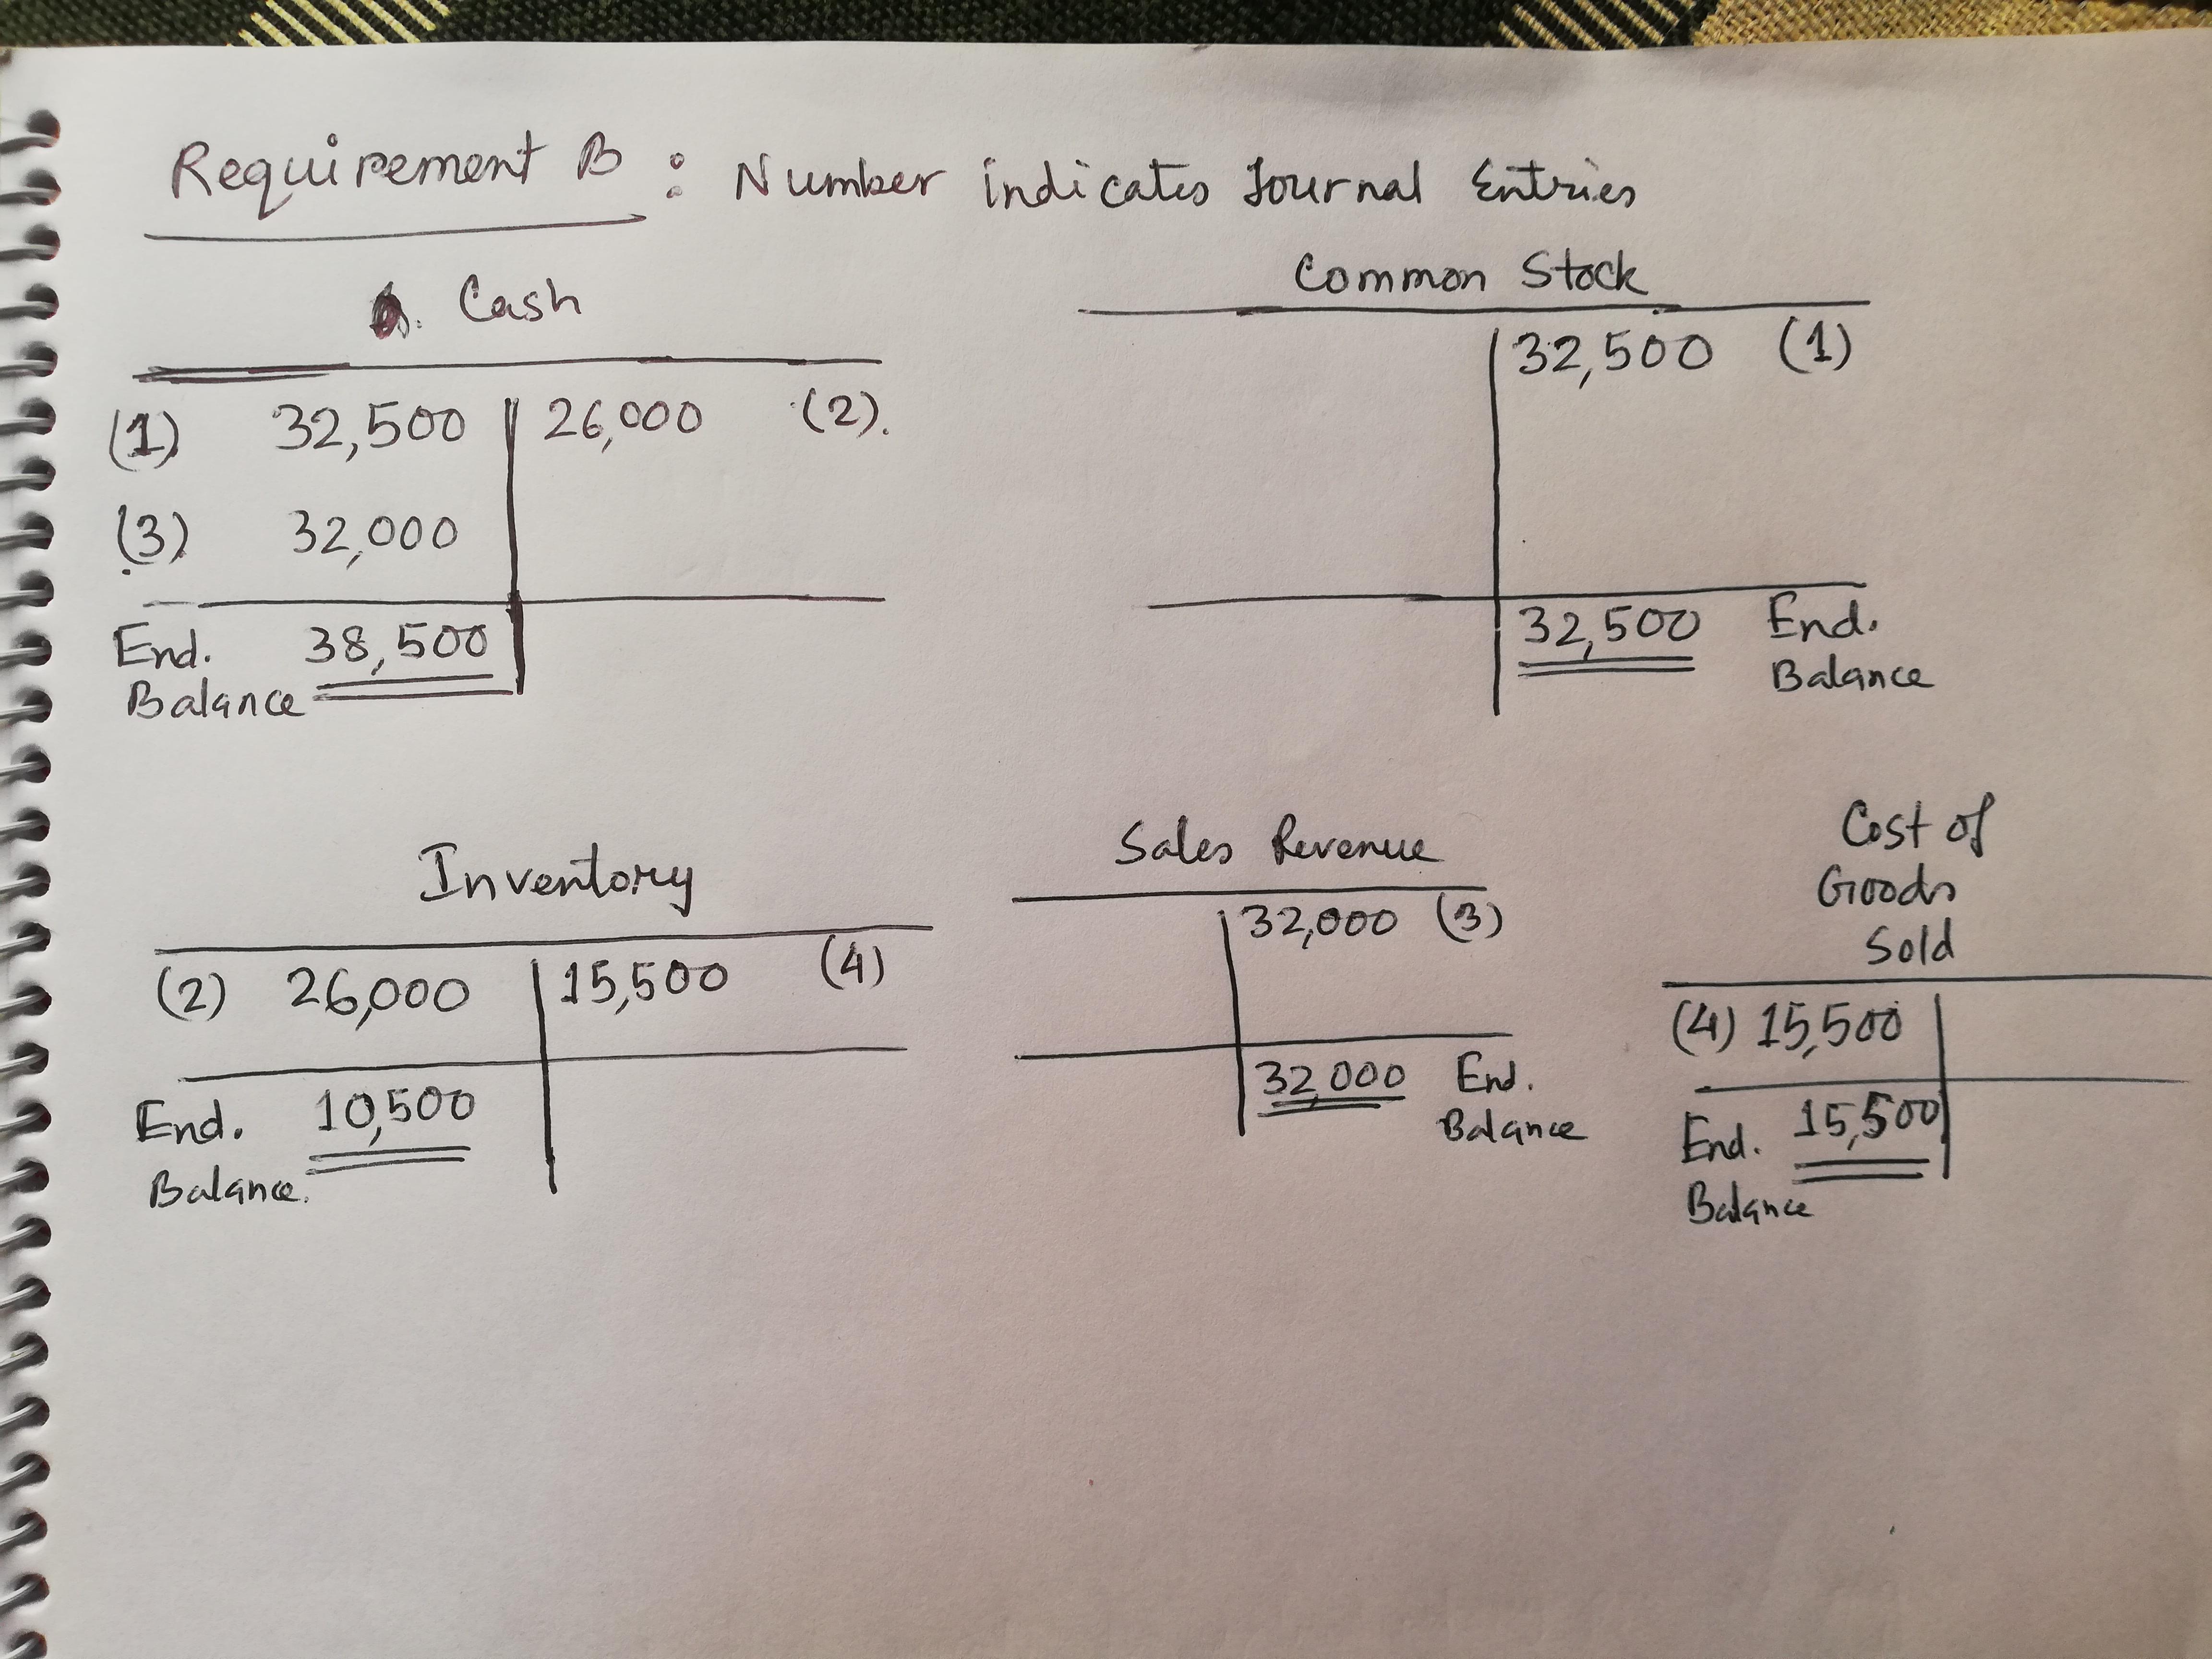 Requirement B : Number indicates Journal Entries
Cash
(1) 32,500 26,000 (2).
(3) 32,000
End. 38,500
Balance
Common Stock
32,500 (1)
32,500 End.
Balance
Inventory
(2) 26,000 15,500 (4)
End. 10,500
Balance.
Sales Revenue
32,000 (3)
32,000 End.
Balance
Cost of
Goods
Sold
(4) 15,500
End. 15,500
Balance